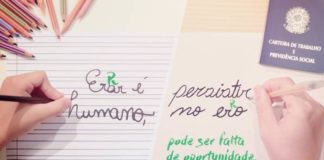 Erar é
humano,
persistir
no ero
pode ser falta
de oportunidade
R
R
CARTEIRA DE TRABALHO
E
PREVIDÊNCIA SOCIAL